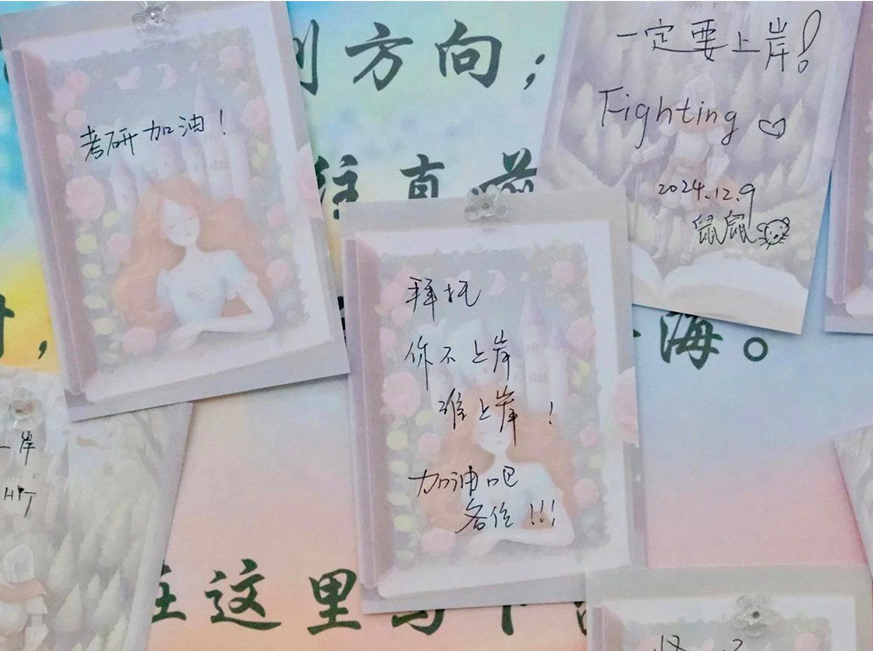 方向；
往直前
海。
在这里写下
考研加油！
一定要上岸！
Fighting
2024.12.9
鼠鼠
拜托
你不上岸
谁上岸！
加油吧
各位!!!
上岸